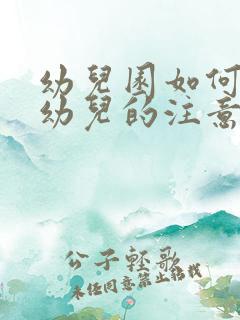 幼兒園如何
幼兒的注意
公子輕歌
未經同意禁止轉載